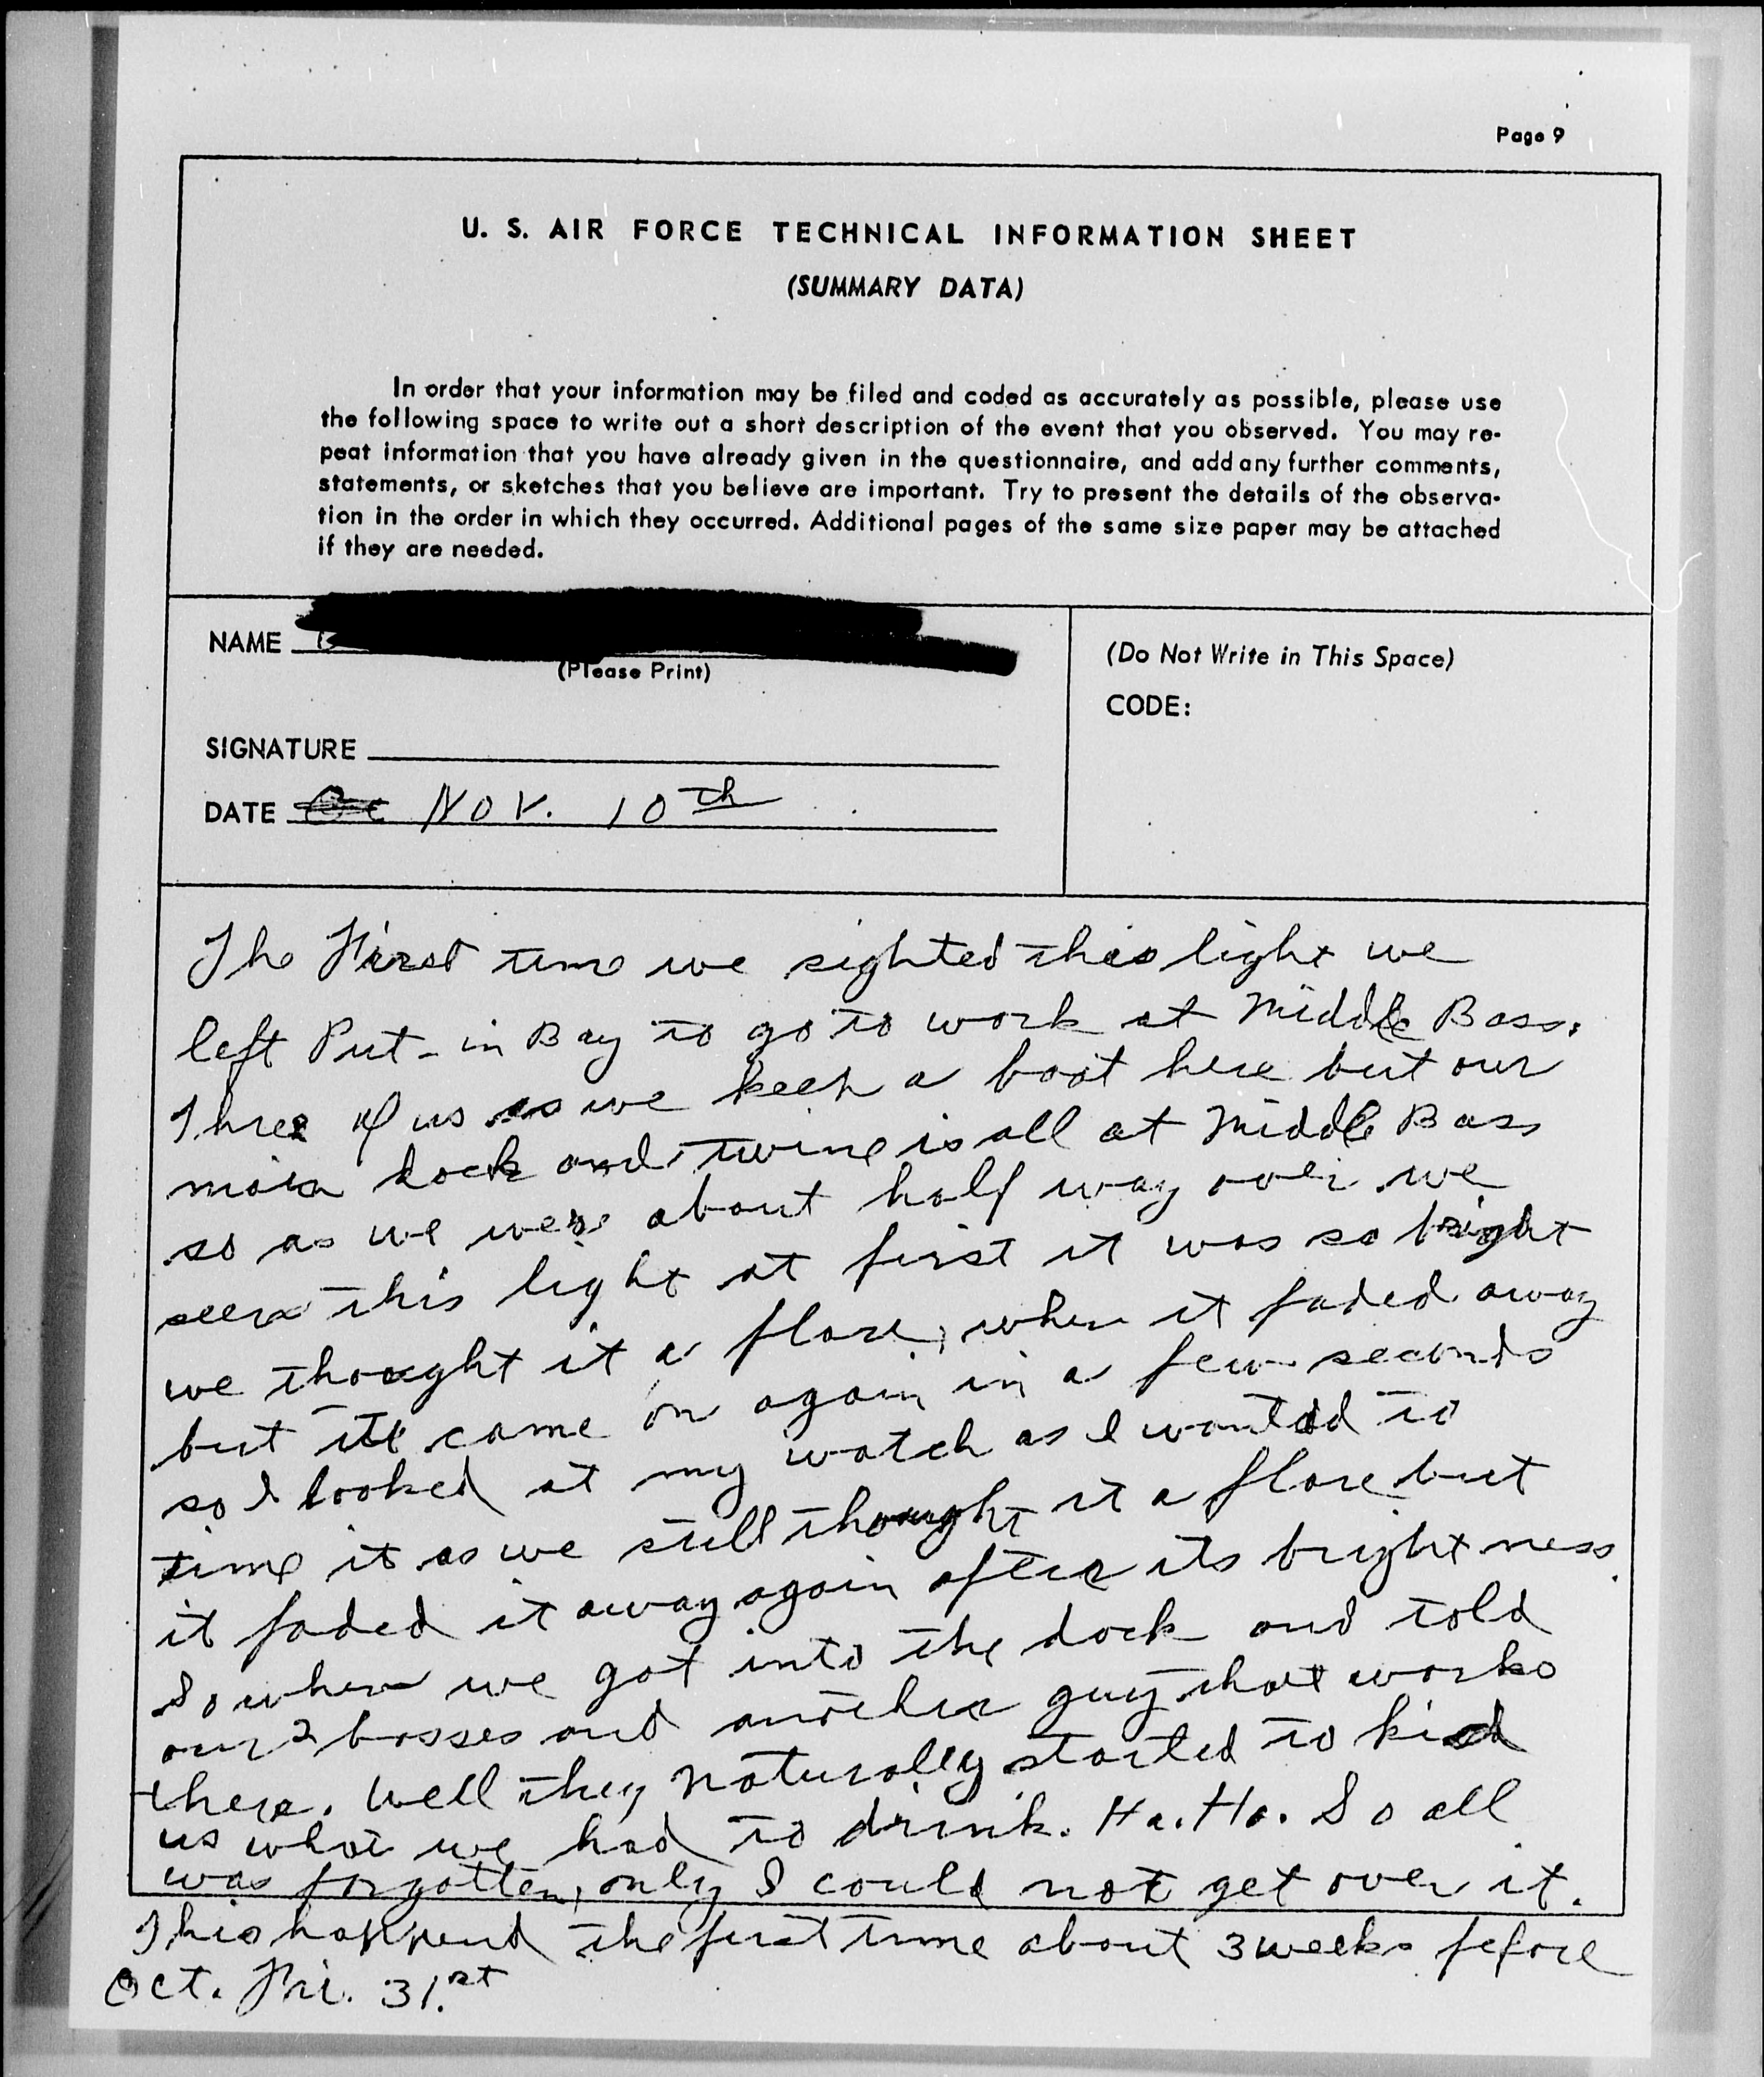 Page 9
U. S. AIR FORCE TECHNICAL INFORMATION SHEET
(SUMMARY DATA)
In order that your information may be filed and coded as accurately as possible, please use
the following space to write out a short description of the event that you observed. You may re-
peat information that you have already given in the questionnaire, and add any further comments,
statements, or sketches that you believe are important. Try to present the details of the observa-
tion in the order in which they occurred. Additional pages of the same size paper may be attached
if they are needed.
NAME
(Please Print)
(Do Not Write in This Space)
CODE:
SIGNATURE
DATE Nov. 10th
The First time we sighted this light we
left Put-in Bay to go to work at Middle Bass.
Three of us as we keep a boat here but our
main dock and twine is all at Middle Bass
so as we were about half way over we
seen this light at first it was so bright
we thought it a flare, when it faded away
but it came on again in a few seconds
so I looked at my watch as I wanted to
time it as we still thought it a flare but
it faded it away again after its brightness.
So when we got into the dock and told
our 2 bosses and another guy that works
there. Well they naturally started to kid
us what we had to drink. Ha. Ha. So all
was forgotten, only I could not get over it.
This happend the first time about 3 weeks fefore
Oct. Fri. 31.st